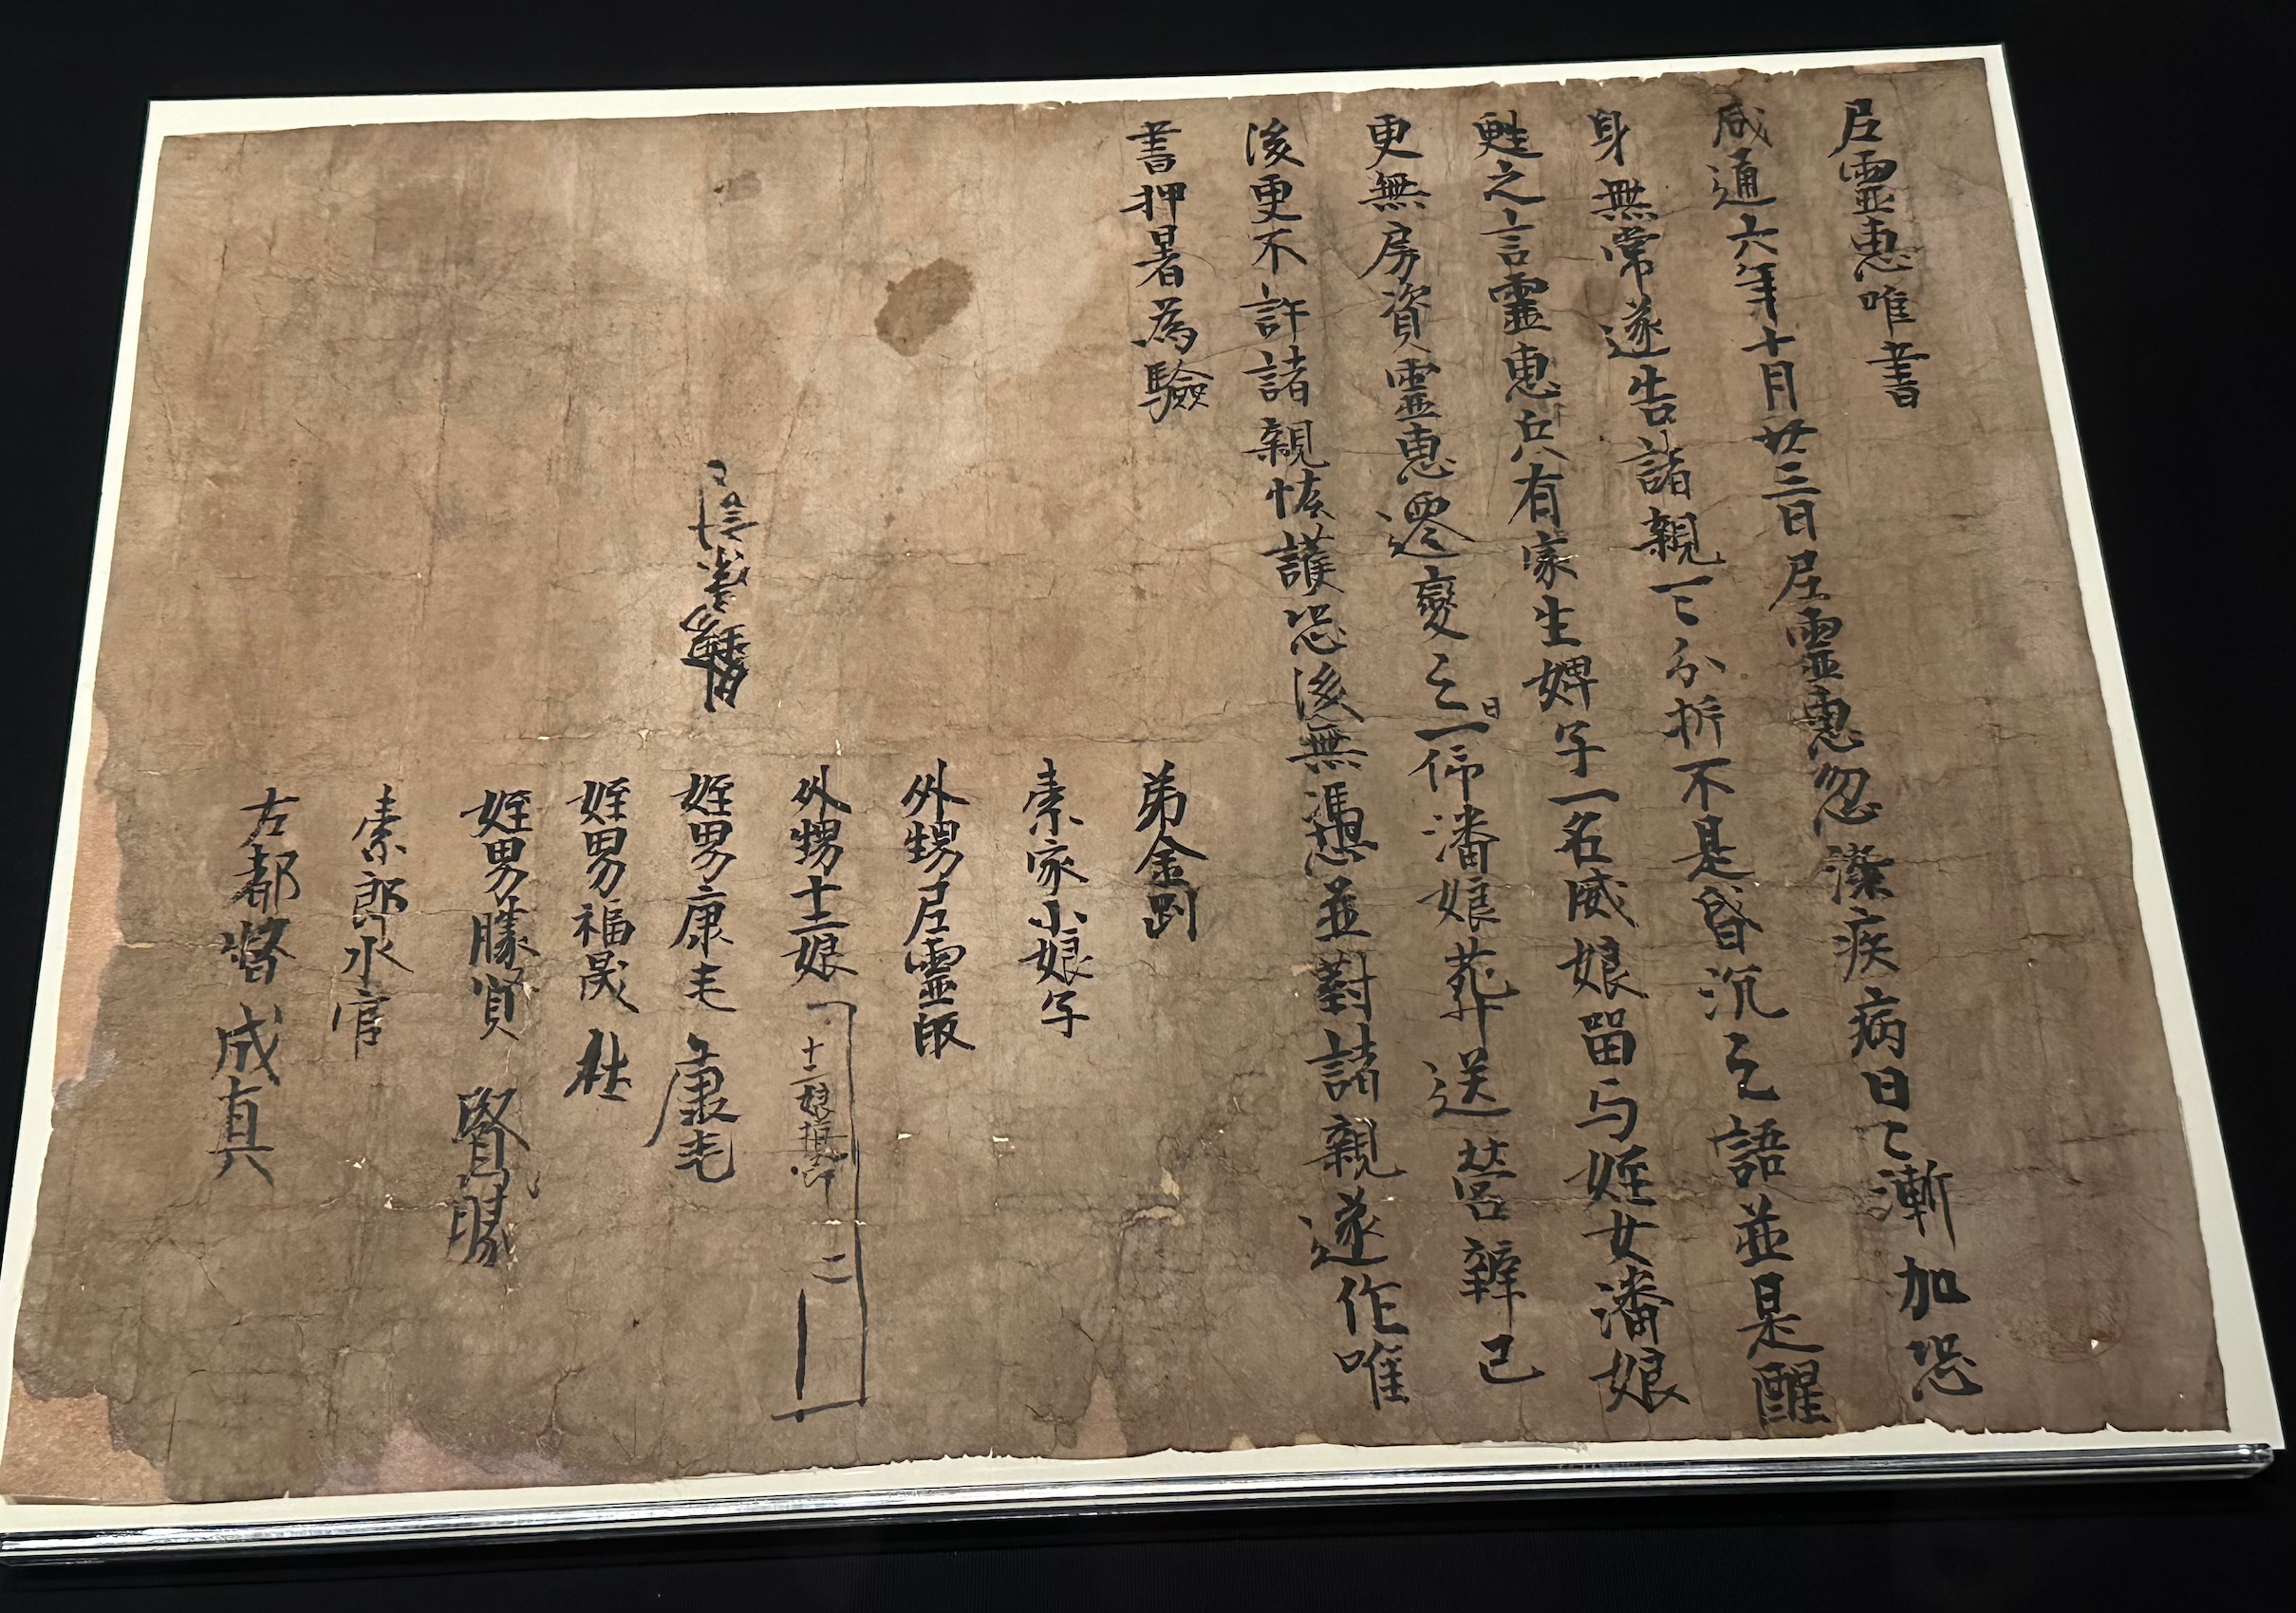 尼靈惠唯書
咸通六年十月廿三日尼靈惠忽染疾病日〻漸加恐
身無常遂告諸親一〻分析不是昏沉之語並是醒
甦之言靈惠只有家生婢子一名威娘留与姪女潘娘
更無房資靈惠遷變之日一仰潘娘葬送營辦已
後更不許諸親恡護恐後無憑並對諸親遂作唯
書押署為驗
弟金剛
索家小娘子
外甥尼靈皈
外甥十二娘 十二娘指節
姪男康毛 康毛
姪男福晟 杜
姪男勝賢 賢勝
索郎水官
左都督成真